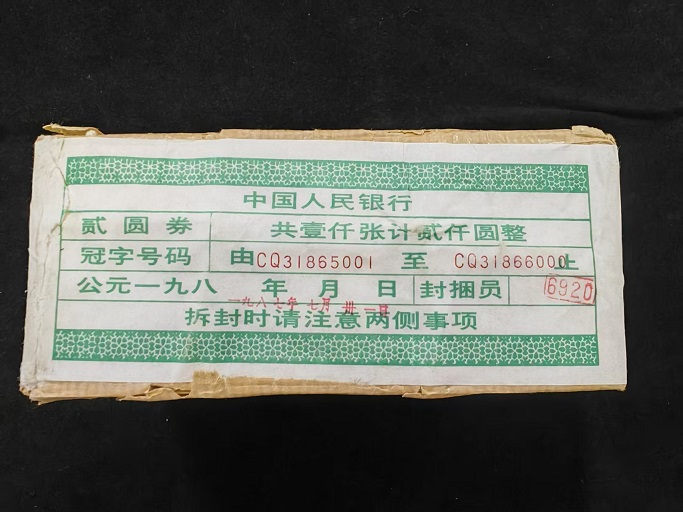 中国人民银行
贰圆券 共壹仟张计贰仟圆整
冠字号码 由CQ31865001 至 CQ31866000止
公元一九八 年 月 日 封捆员 6920
一九八七年 七月 卅一日
拆封时请注意两侧事项